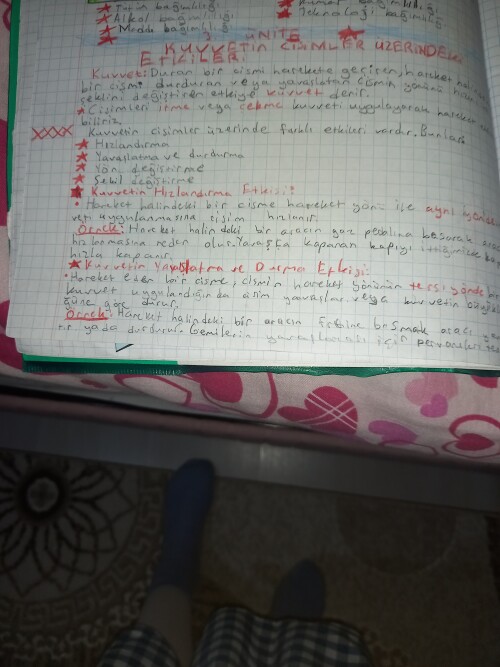 ★ bağımlılığı
★ bağımlılığı.
★ Alkol bağımlılığı.
★ Teknoloji bağımlılığı.
★ Madde bağımlılığı
3. ÜNİTE
KUVVETİN CİSİMLER ÜZERİNDEKİ
ETKİLERİ
Kuvvet: Duran bir cismi harekete geçiren, hareket
bir cismi durduran veya yavaşlatan cismin yönünü
şeklini değiştiren etkiye kuvvet denir.
★ Cisimleri itme veya çekme kuvveti uygulayarak hareket
biliriz.
XXXX Kuvvetin cisimler üzerinde farklı etkileri vardır. Bunlar:
★ Hızlandırma
★ Yavaşlatma ve durdurma
★ Yön değiştirme
★ Şekil değiştirme
★ Kuvvetin Hızlandırma Etkisi:
• Hareket halindeki bir cisme hareket yönü ile aynı
veti uygulanmasına cisim hızlanır.
Örnek: Hareket halindeki bir aracın gaz pedalına basarak
hızlanmasına neden olur. Yavaşça kapanan kapıyı
hızla kapanır.
★ Kuvvetin Yavaşlatma ve Durma Etkisi:
• Hareket eden bir cisme, cismin hareket yönünün tersi yönde
kuvvet uygulandığında cisim yavaşlar veya kuvvetin
göre durur.
Örnek: Hareket halindeki bir aracın frenine basmak aracı
tır yada durdurur. Gemilerin yavaşlamak için pervaneleri